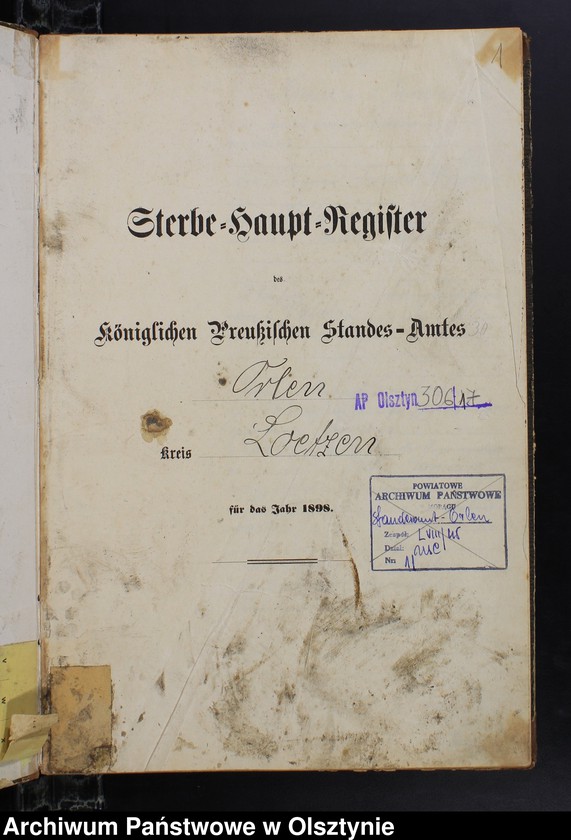 1
Sterbe-Haupt-Register
des
Königlichen Preußischen Standes-Amtes
Orlen
AP Olsztyn 306/17
Kreis Loetzen
für das Jahr 1898.
POWIATOWE
ARCHIWUM PAŃSTWOWE
Standesamt-Orlen
Zespół: LVIII/45
Dział: USC
Nr: 1
Archiwum Państwowe w Olsztynie